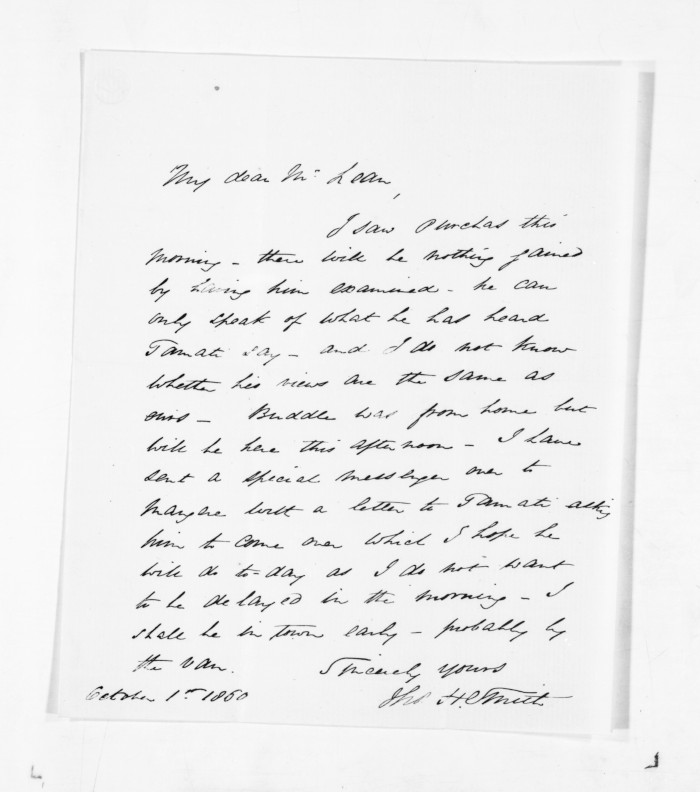 My dear Mr. Lean,
I saw Purchas this
morning - there will be nothing gained
by having him examined - he can
only speak of what he has heard
Tamati say - and I do not know
whether his views are the same as
ours - Buddle was from home but
will be here this afternoon - I have
sent a special messenger over to
Mangere with a letter to Tamati asking
him to come over which I hope he
will do to-day as I do not want
to be delayed in the morning - I
shall be in town early - probably by
the van.
Sincerely yours
Thos H. Smith
October 1st 1860